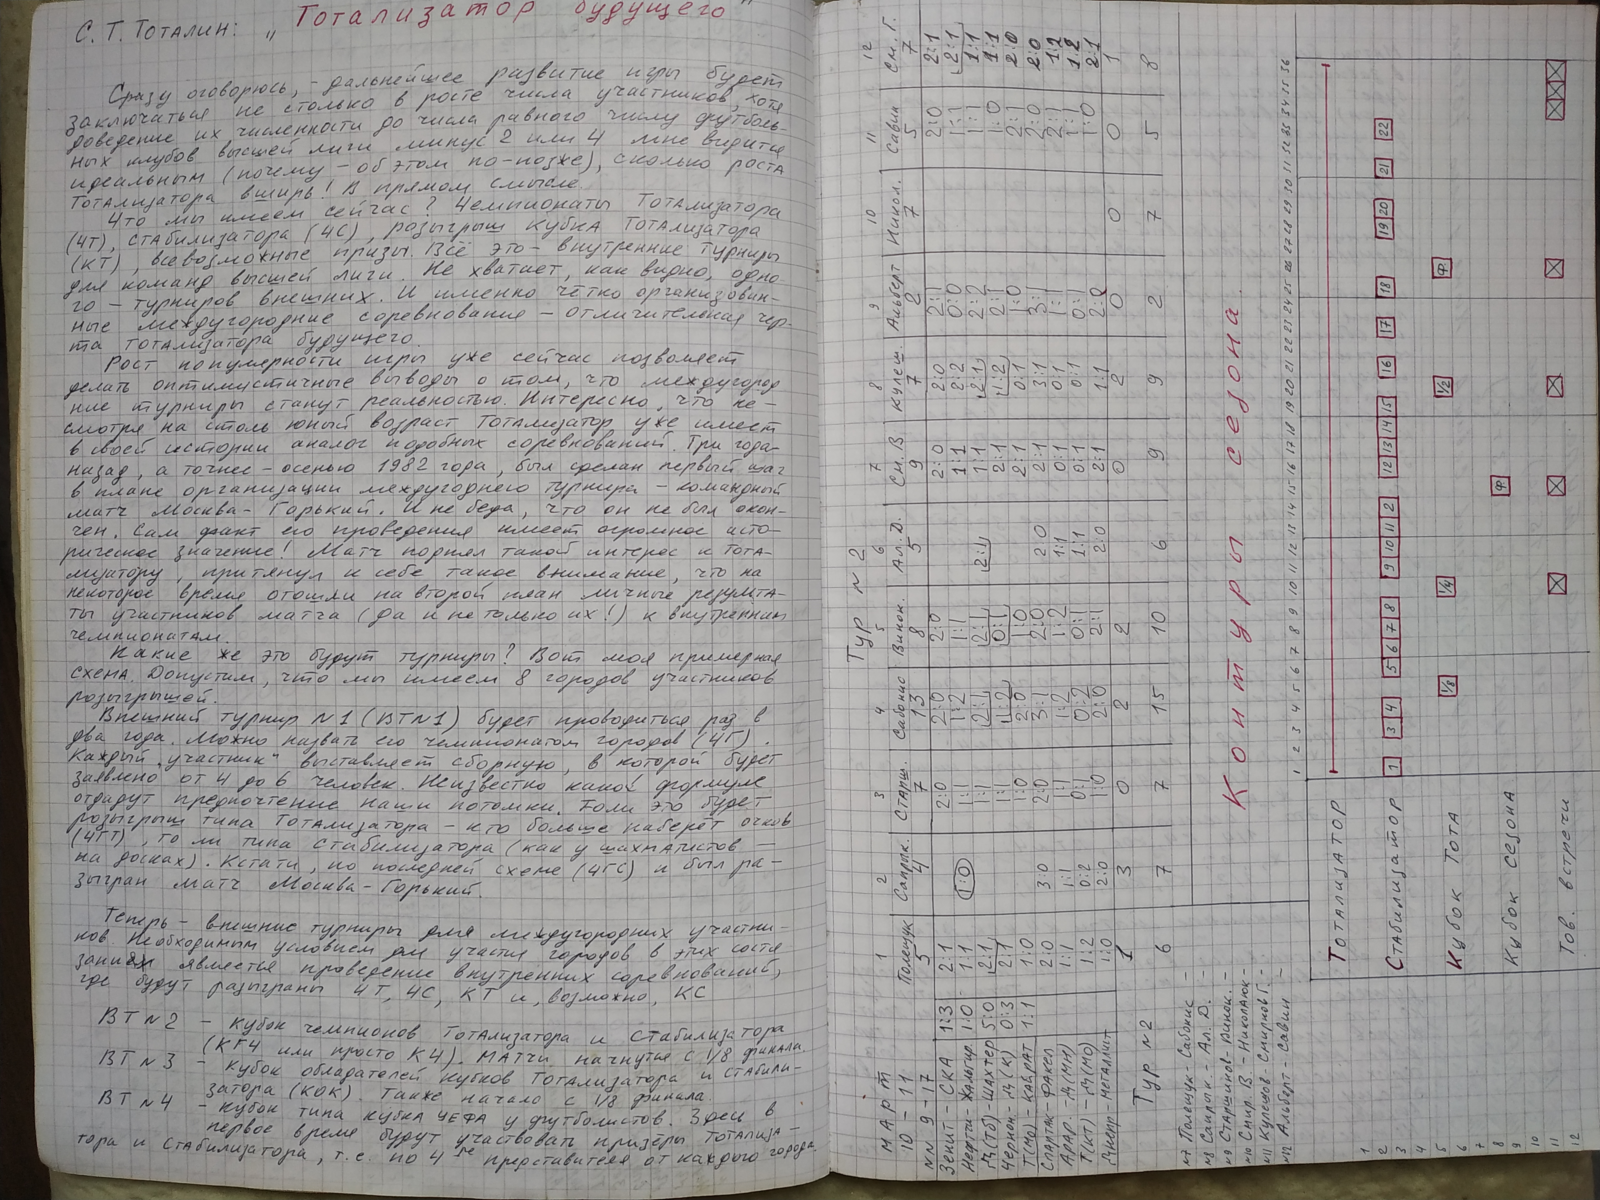 С. Т. Тоталин: „Тотализатор будущего"
Сразу оговорюсь, - дальнейшее развитие игры будет
заключаться не столько в росте числа участников, хотя
доведение их численности до числа равного числу футболь-
ных клубов высшей лиги минус 2 или 4 мне видится
идеальным (почему - об этом по-позже), сколько роста
Тотализатора вширь! В прямом смысле.
Что мы имеем сейчас? Чемпионаты Тотализатора
(ЧТ), Стабилизатора (ЧС), розыгрыш Кубка Тотализатора
(КТ), всевозможные призы. Всё это - внутренние турниры
для команд высшей лиги. Не хватает, как видно, одно
го - турниров внешних. И именно чётко организован-
ные междугородние соревнования - отличительная чер-
та Тотализатора будущего.
Рост популярности игры уже сейчас позволяет
делать оптимистичные выводы о том, что междугород
ние турниры станут реальностью. Интересно, что не-
смотря на столь юный возраст Тотализатор уже имеет
в своей истории аналог подобных соревнований. Три года
назад, а точнее - осенью 1982 года, был сделан первый шаг
в плане организации междугоднего турнира - командный
матч Москва - Горький. И не беда, что он не был окон-
чен. Сам факт его проведения имеет огромное исто-
рическое значение! Матч поднял такой интерес к Тота-
лизатору, притянул к себе такое внимание, что на
некоторое время отошли на второй план личные результа-
ты участников матча (да и не только их!) к внутренним
чемпионатам.
Какие же это будут турниры? Вот моя примерная
схема. Допустим, что мы имеем 8 городов участников
розыгрышей.
Внешний турнир №1 (ВТ№1) будет проводиться раз в
два года. Можно назвать его чемпионатом городов (ЧГ).
Каждый „участник" выставляет сборную, в которой будет
заявлено от 4 до 6 человек. Неизвестно какой формуле
отдадут предпочтение наши потомки. Толи это будет
розыгрыш типа Тотализатора - кто больше наберёт очков
(ЧГТ), то ли типа Стабилизатора (как у шахматистов -
на досках). Кстати, по последней схеме (ЧГС) и был ра-
зыгран матч Москва - Горький.
Теперь - внешние турниры для междугородних участни-
ков. Необходимым условием для участия городов в этих состя
заниях является проведение внутренних соревнований,
где будут разыграны ЧТ, ЧС, КТ и, возможно, КС
ВТ №2 - Кубок чемпионов Тотализатора и Стабилизатора
(КГЧ или просто КЧ). Матчи начнутся с 1/8 финала.
ВТ №3 - Кубок обладателей кубков Тотализатора и Стабили-
затора (КОК). Также начало с 1/8 финала.
ВТ №4 - Кубок типа кубка УЕФА у футболистов. Здесь в
первое время будут участвовать призёры Тотализа-
тора и Стабилизатора, т.е. по 4 представителя от каждого города.
Тур №2
Март 1 2 3 4 5 6 7 8 9 10 11 12
10 - 11 Полещук Сапрык. Старш. Сабонис Винок. Ал. Д. См. В Кулеш. Альберт Никол. Савин См. Г.
№№ 9 - 17 5 4 7 13 8 5 9 7 2 7 5 7
Зенит - СКА 1:3 2:1 2:0 2:0 2:0 2:0 2:0 2:1 2:0 2:1
Нефтчи - Жальгир. 1:0 1:1 1:0 1:1 1:2 1:1 1:1 2:2 0:0 1:1 2:1
Д(Тб) - Шахтёр 5:0 2:1 1:1 2:1 2:1 2:1 1:1 2:1 2:2 1:1 1:1
Черном - Д(К) 0:3 2:1 1:1 1:2 0:1 2:1 1:2 2:1 1:0 1:1
Т(Мо) - Кайрат 1:1 1:0 1:0 2:0 1:0 2:1 0:1 1:0 2:1 2:0
Спартак - Факел 2:0 3:0 2:0 3:1 2:0 2:0 2:1 3:1 3:1 2:0 2:0
Арар. - Д(Мн) 1:1 1:1 1:1 1:2 1:2 1:1 0:1 0:1 1:1 2:1 1:2
Т(Кт) - Д(Мо) 1:2 0:2 0:1 0:2 0:1 1:1 0:1 0:1 0:1 1:1 1:2
Днепр - Металлист 1:0 2:0 1:0 2:0 2:1 2:0 2:1 1:1 2:0 1:0 2:1
1 3 0 2 2 0 2 0 0 0 1
Тур №2 6 7 7 15 10 6 9 9 2 7 5 8
№7 Полещук - Сабонис -
№8 Сапрык. - Ал. Д. -
№9 Старшинов - Винок. -
№10 Смир. В. - Николаюк -
№11 Кулешов - Смирнов Г. -
№12 Альберт - Савин -
Контуры сезона.
1 2 3 4 5 6 7 8 9 10 11 12 13 14 15 16 17 18 19 20 21 22 23 24 25 26 27 28 29 30 31 32 33 34 35 36
Тотализатор
Стабилизатор 1 3 4 5 6 7 8 9 10 11 2 12 13 14 15 16 17 18 19 20 21 22
Кубок Тота 1/8 1/4 1/2 Ф
Кубок сезона Ф
Тов. встречи
1
2
3
4
5
6
7
8
9
10
11
12